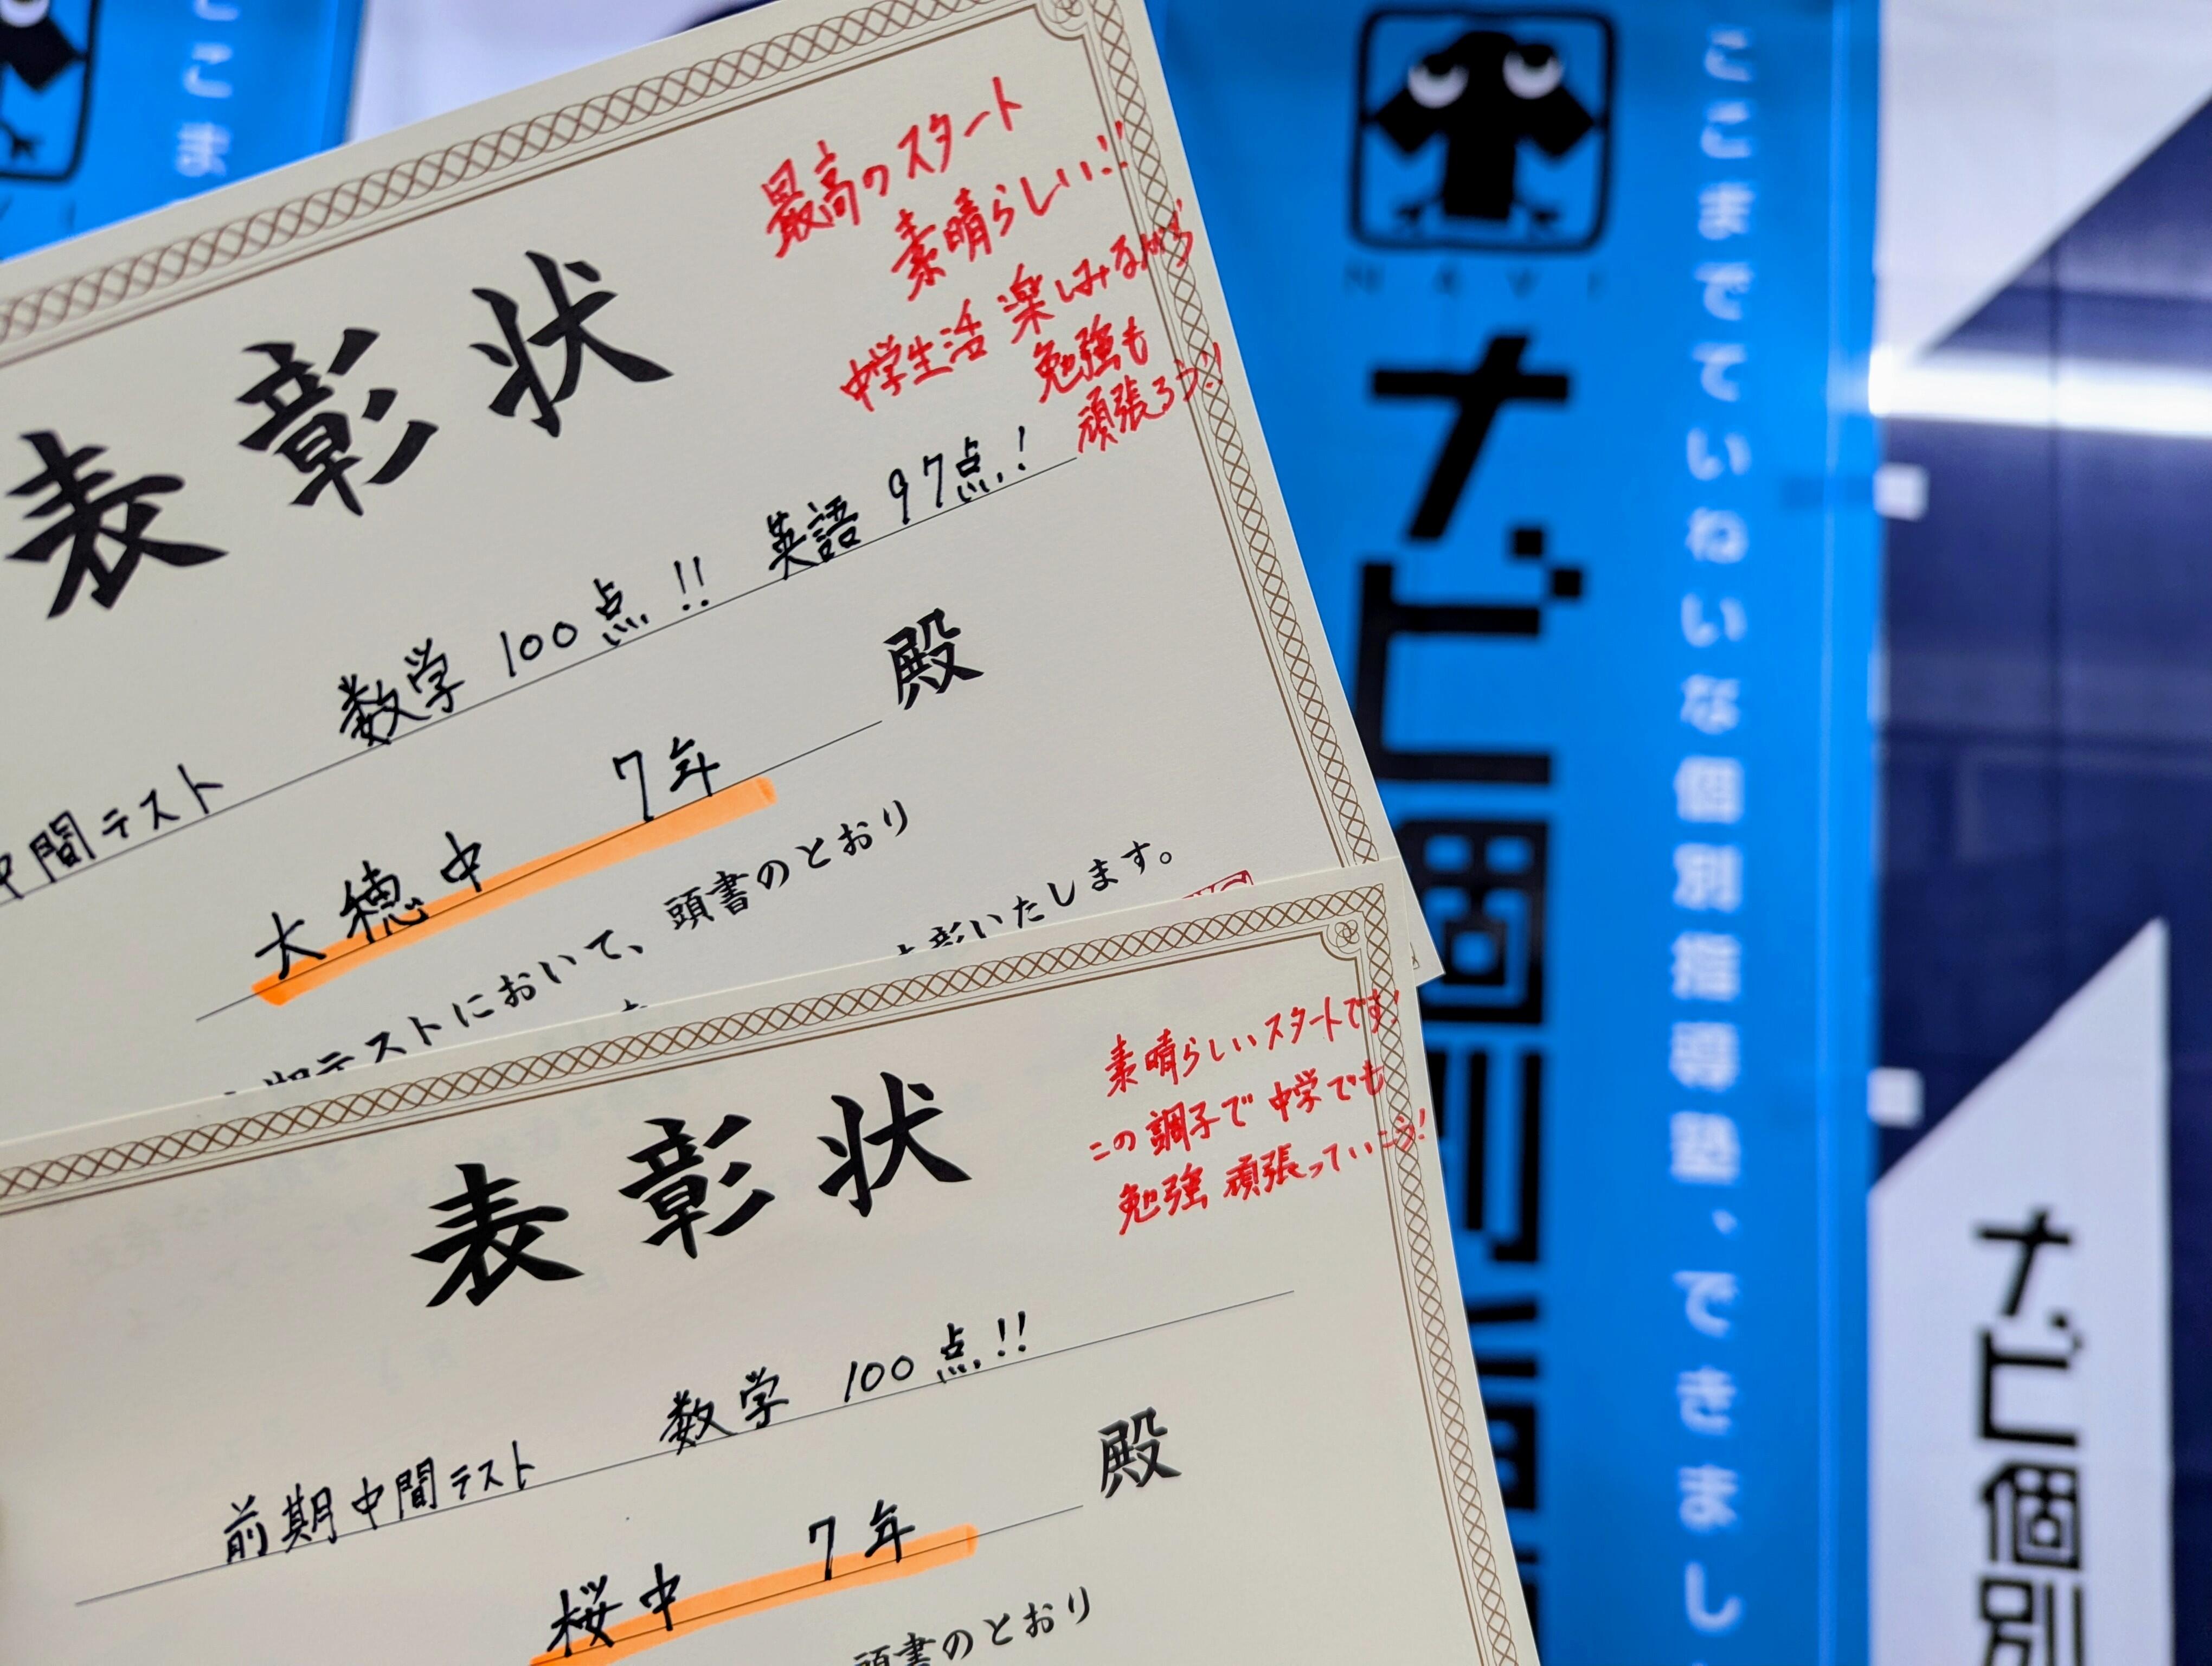 最高のスタート
素晴らしい!!
中学生活 楽しみながら
勉強も
頑張ろう!!
表彰状
中間テスト 数学 100点!! 英語 97点!
大穂中 7年 殿
期テストにおいて、頭書のとおり
彰いたします。
素晴らしいスタートです!
この調子で中学でも
勉強 頑張っていこう!
表彰状
前期中間テスト 数学 100点!!
桜中 7年 殿
頭書のとおり
NAVI
ナビ個別
ここまでていねいな個別指導塾、できまし
ナビ個別
こま